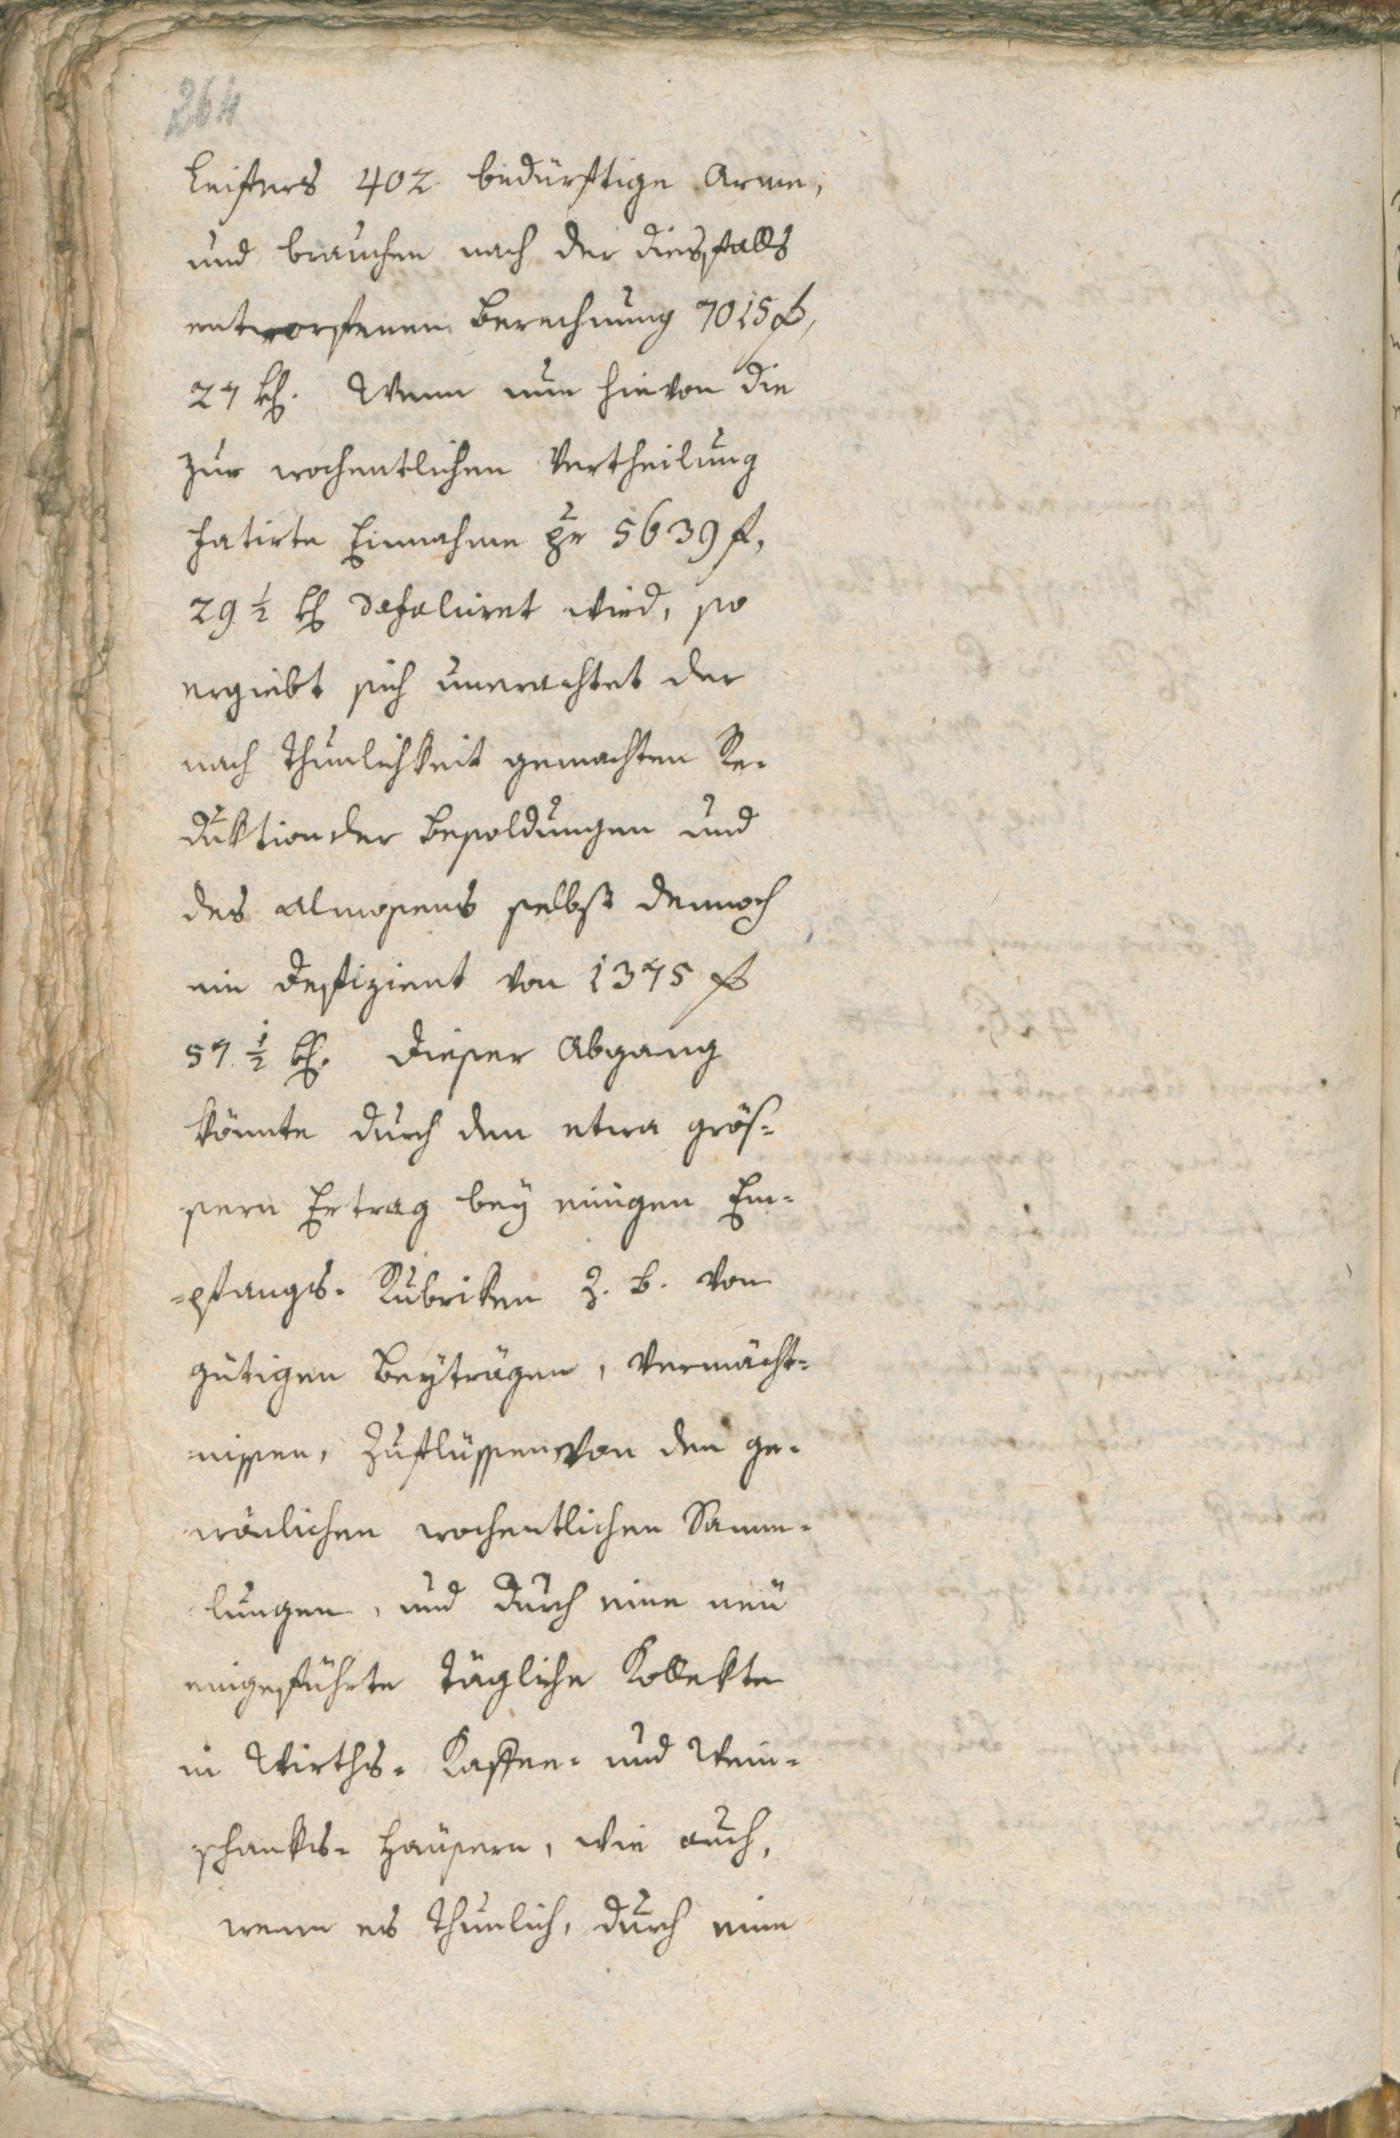 264
leisters 402 bedürftige Arme,
und brauchen nach der diesfalls
entworfenen Berechnung 7015 f,
27 kr. Wenn nun hievon die
zur wochentlichen Vertheilung
fatirte Einnahme pr 5639 f,
29 ½ kr defalciret wird, so
ergiebt sich unerachtet der
nach Thunlichkeit gemachten Re-
duktion der Besoldungen und
des Almosens selbst dennoch
ein Defizient von 1375 f
57 ½ kr. Dieser Abgang
könnte durch den etwa grös-
sern Ertrag bey einigen Em-
-pfangs- Rubriken z. B. von
gütigen Beyträgen, Vermächt-
nissen, Zuflüssen von den ge-
wönlichen wochentlichen Samm-
lungen, und durch eine neü
eingeführte tägliche Kollekte
in Wirths- Kaffee- und Wein-
schanks- Haüsern, wie auch,
wenn es thunlich, durch eine